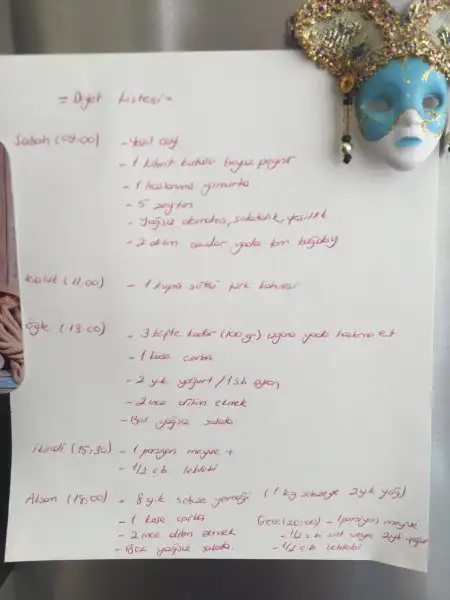 = Diyet Listesi =
Sabah (09:00) - Yeşil çay
- 1 kibrit kutusu beyaz peynir
- 1 haşlanmış yumurta
- 5 zeytin
- Yağsız domates, salatalık, yeşillik
- 2 dilim çavdar yada tam buğday
(11:00) - 1 kupa sütlü türk kahvesi
öğle (13:00) - 3 köfte kadar (100 gr) ızgara yada haşlama et
- 1 kase çorba
- 2 yk yoğurt / 1 sb ayran
- 2 ince dilim ekmek
- Bol yağsız salata
ikindi (15:30) - 1 porsiyon meyve +
- 1/2 ç.b leblebi
Akşam (18:00) - 8 y.k sebze yemeği (1 kg sebzeye 2 yk yağ)
- 1 kase çorba
- 2 ince dilim ekmek
- Bol yağsız salata.
Gece (20:00) - 1 porsiyon meyve
- süt veya 2 yk yoğurt
- 1/2 ç.b leblebi